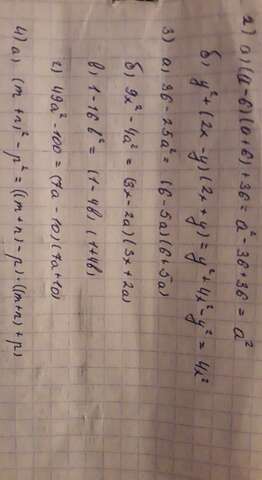 2) а) (а-6)(а+6)+36 = а²-36+36 = а²
б) y²+(2x-y)(2x+y) = y²+4x²-y² = 4x²
3) а) 36-25а² = (6-5а)(6+5а)
б) 9x²-4а² = (3x-2а)(3x+2а)
в) 1-16b² = (1-4b)(1+4b)
г) 49а²-100 = (7а-10)(7а+10)
4) а) (m+n)²-p² = ((m+n)-p)·((m+n)+p)